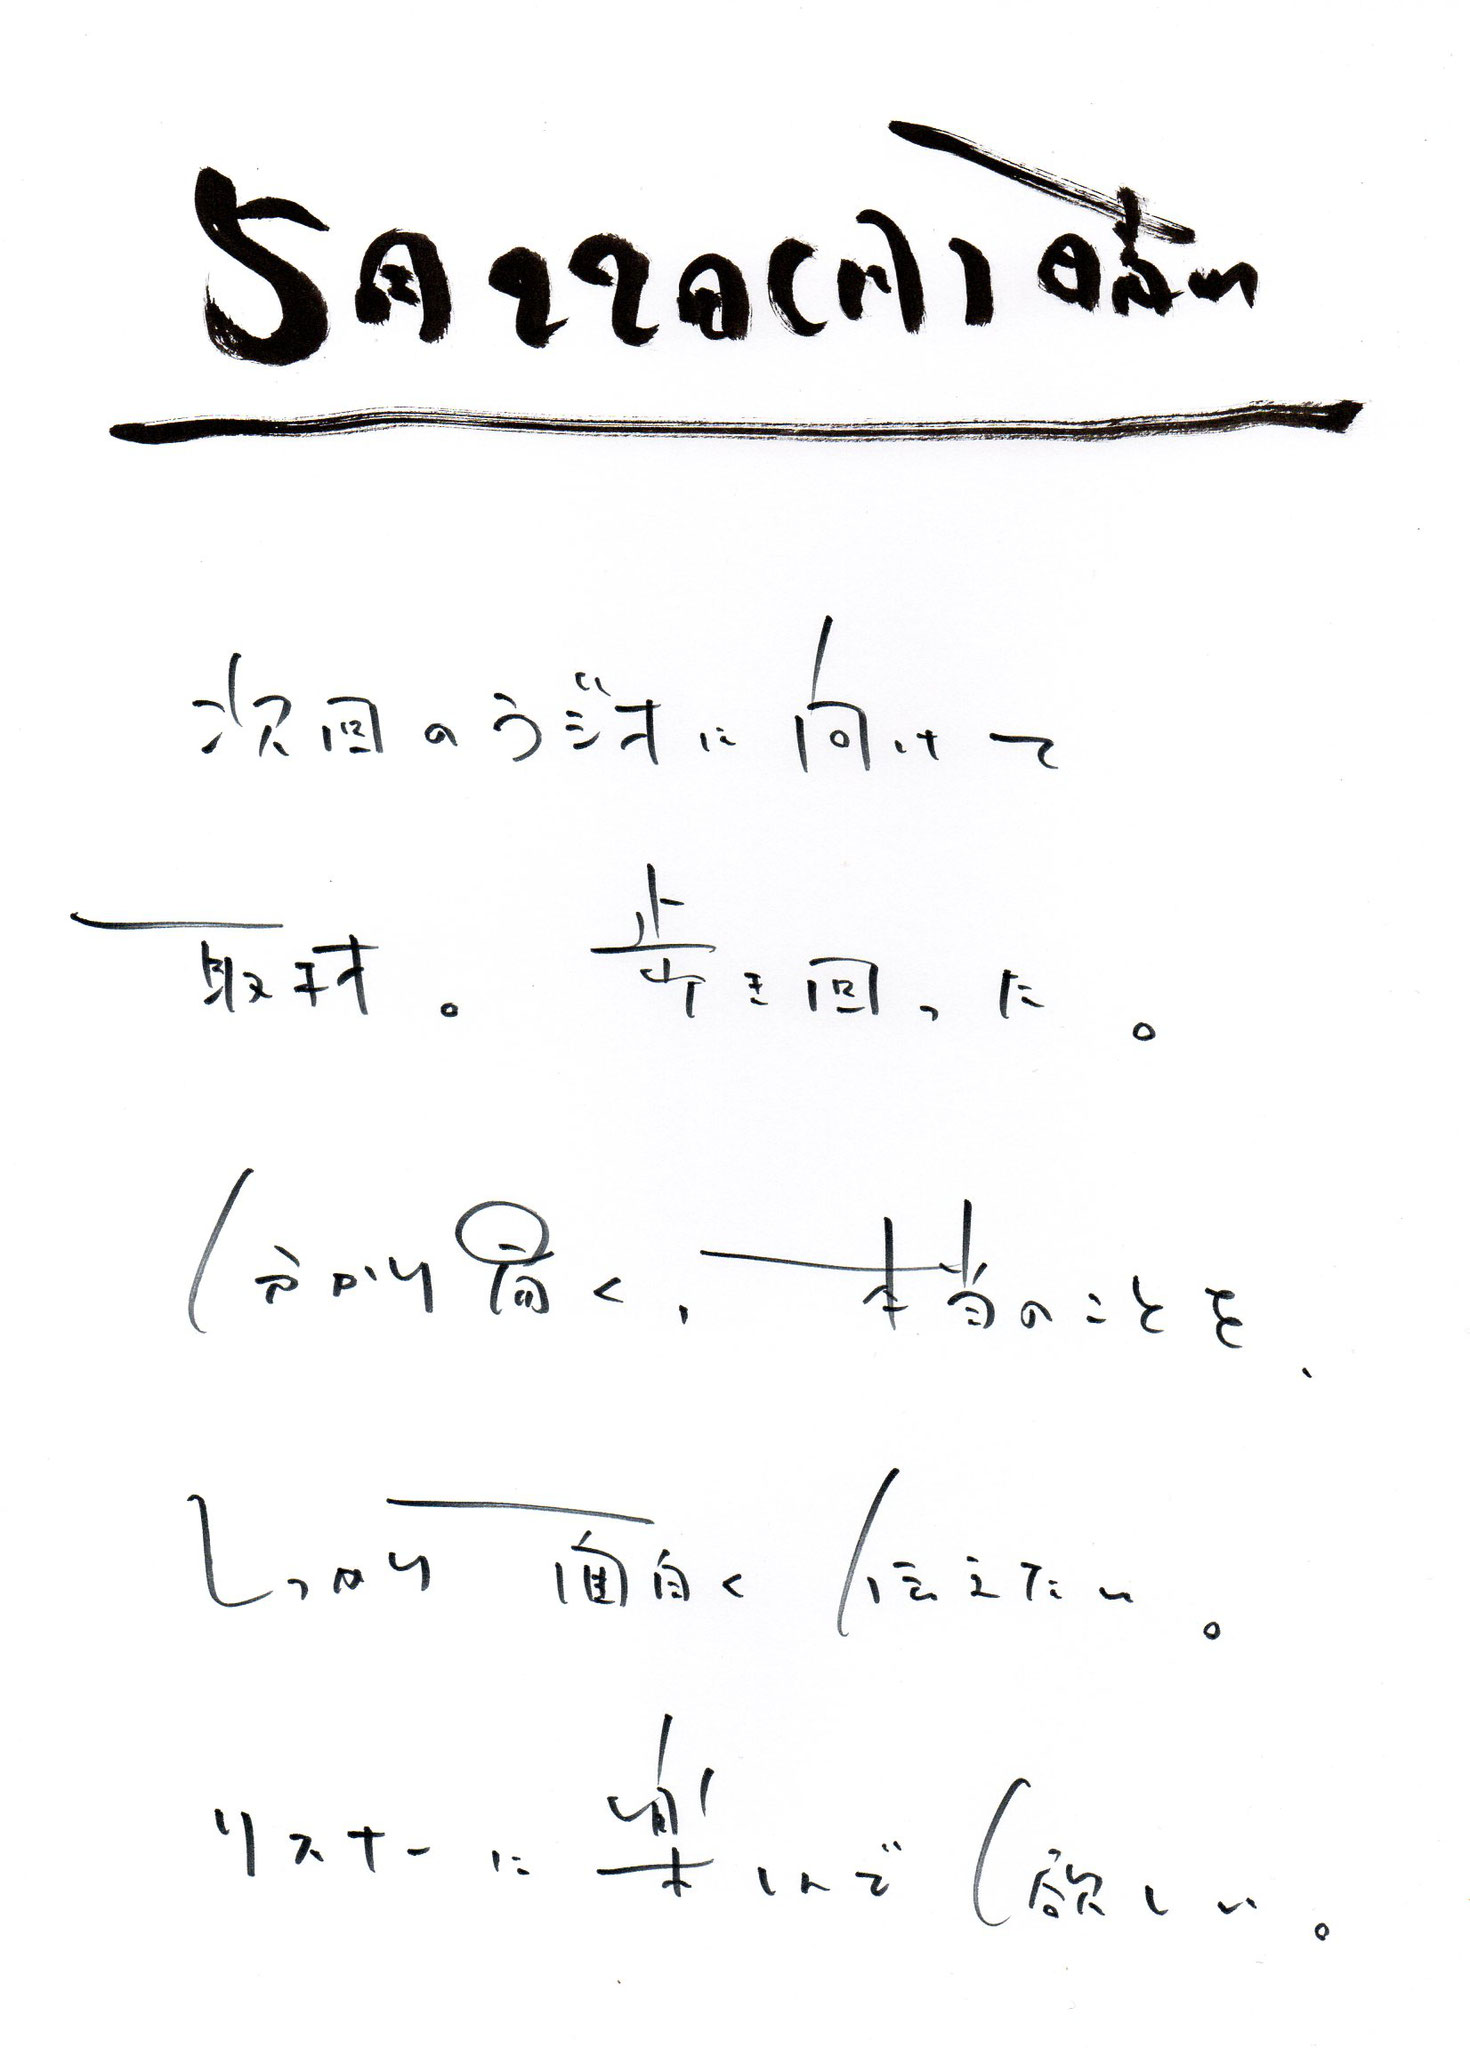 5月22日(月)晴れ
次回のラジオに向けて
取材。歩き回った。
分かり易く、本当のことを、
しっかり面白く伝えたい。
リスナーに楽しんで欲しい。